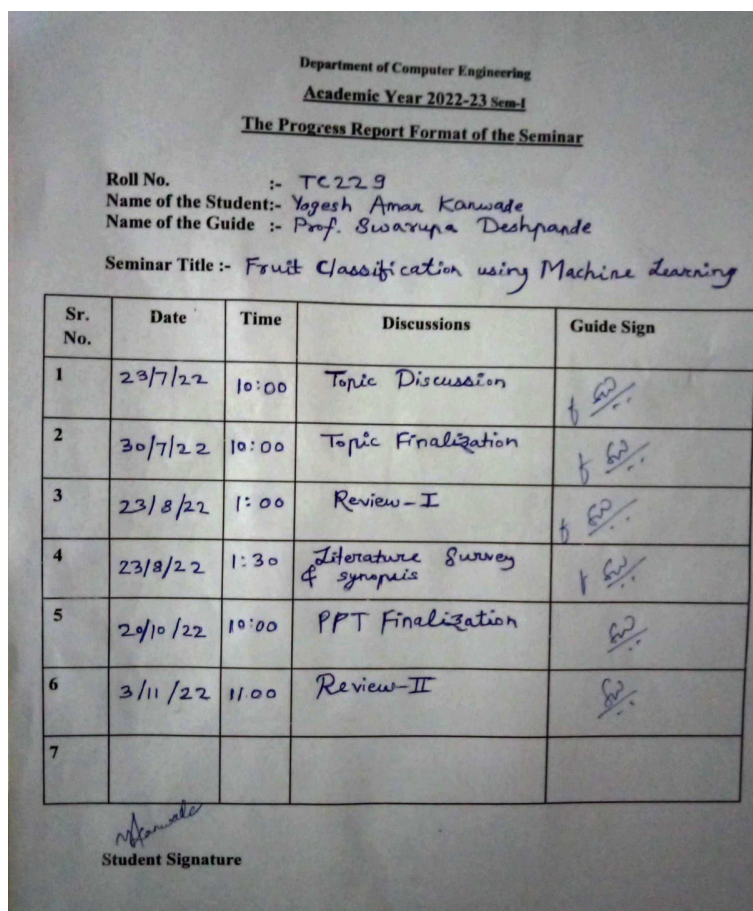 Department of Computer Engineering
Academic Year 2022-23 Sem-I
The Progress Report Format of the Seminar
Roll No. :- TC229
Name of the Student:- Yogesh Aman Kanwade
Name of the Guide :- Prof. Swarupa Deshpande
Seminar Title :- Fruit Classification using Machine Learning
Sr. No. Date Time Discussions Guide Sign
1 23/7/22 10:00 Topic Discussion
2 30/7/22 10:00 Topic Finalization
3 23/8/22 1:00 Review-I
4 23/8/22 1:30 Literature Survey
& synopsis
5 20/10/22 10:00 PPT Finalization
6 3/11/22 11.00 Review-II
7
Student Signature